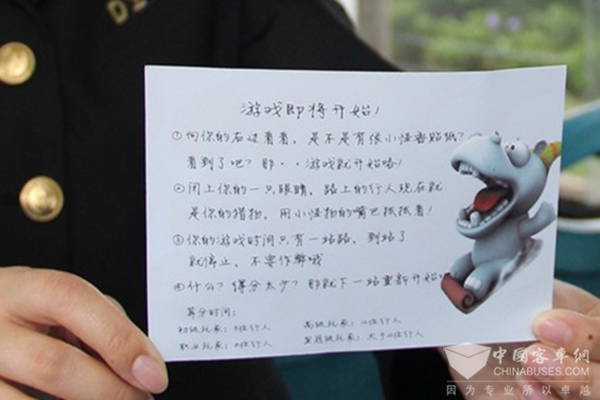 游戏即将开始!
①向你的右边看看,是不是有张小怪兽贴纸?
看到了吧?那··游戏就开始咯!
②闭上你的一只眼睛,路上的行人现在就
是你的猎物,用小怪物的嘴巴抓抓看!
③你的游戏时间只有一站路,到站了
就停止,不要作弊哦
④什么?得分太少?那就下一站重新开始
算分时间:
初级玩家: 位行人
高级玩家: 位行人
职业玩家: 位行人
骨灰级玩家:大于 位行人
中国客车网
CHINABUSES.COM
因为专业所以卓越